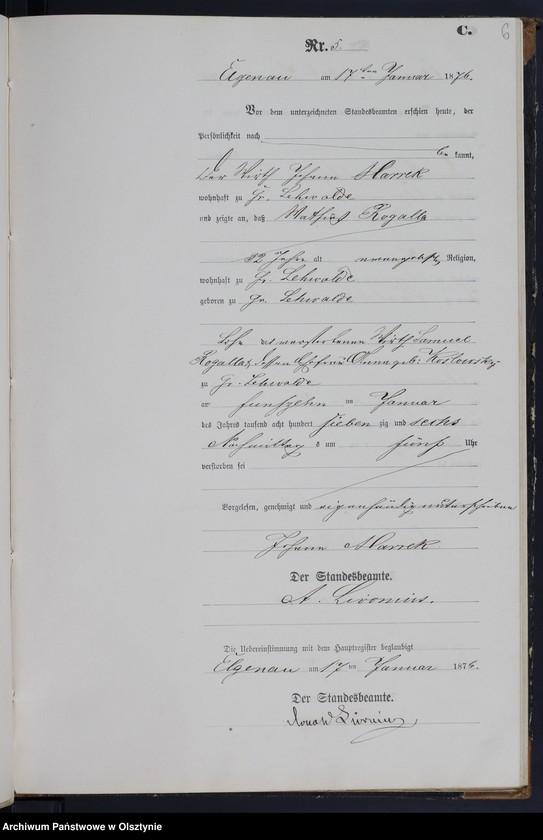 C.
6
Nr. 5.
Elgenau am 17ten Januar 1876.
Vor dem unterzeichneten Standesbeamten erschien heute, der
Persönlichkeit nach
be kannt,
Der Wirth Johann Marrek
wohnhaft zu Gr. Lehwalde
und zeigte an, daß Mathias Rogalla
82 Jahre alt evangelisch Religion,
wohnhaft zu Gr. Lehwalde
geboren zu Gr. Lehwalde
Sohn des verstorbenen Wirth Samuel
Rogalla dessen Ehefrau Anna geb.
zu Gr. Lehwalde
am funfzehn ten Januar
des Jahres tausend acht hundert sieben zig und sechs
Nachmittag s um fünf Uhr
verstorben sei
Vorgelesen, genehmigt und eigenhändig unterschrieben
Johann Marrek
Der Standesbeamte.
A. Livonius.
Die Uebereinstimmung mit dem Hauptregister beglaubigt
Elgenau am 17 ten Januar 1876.
Der Standesbeamte.
Archiwum Państwowe w Olsztynie